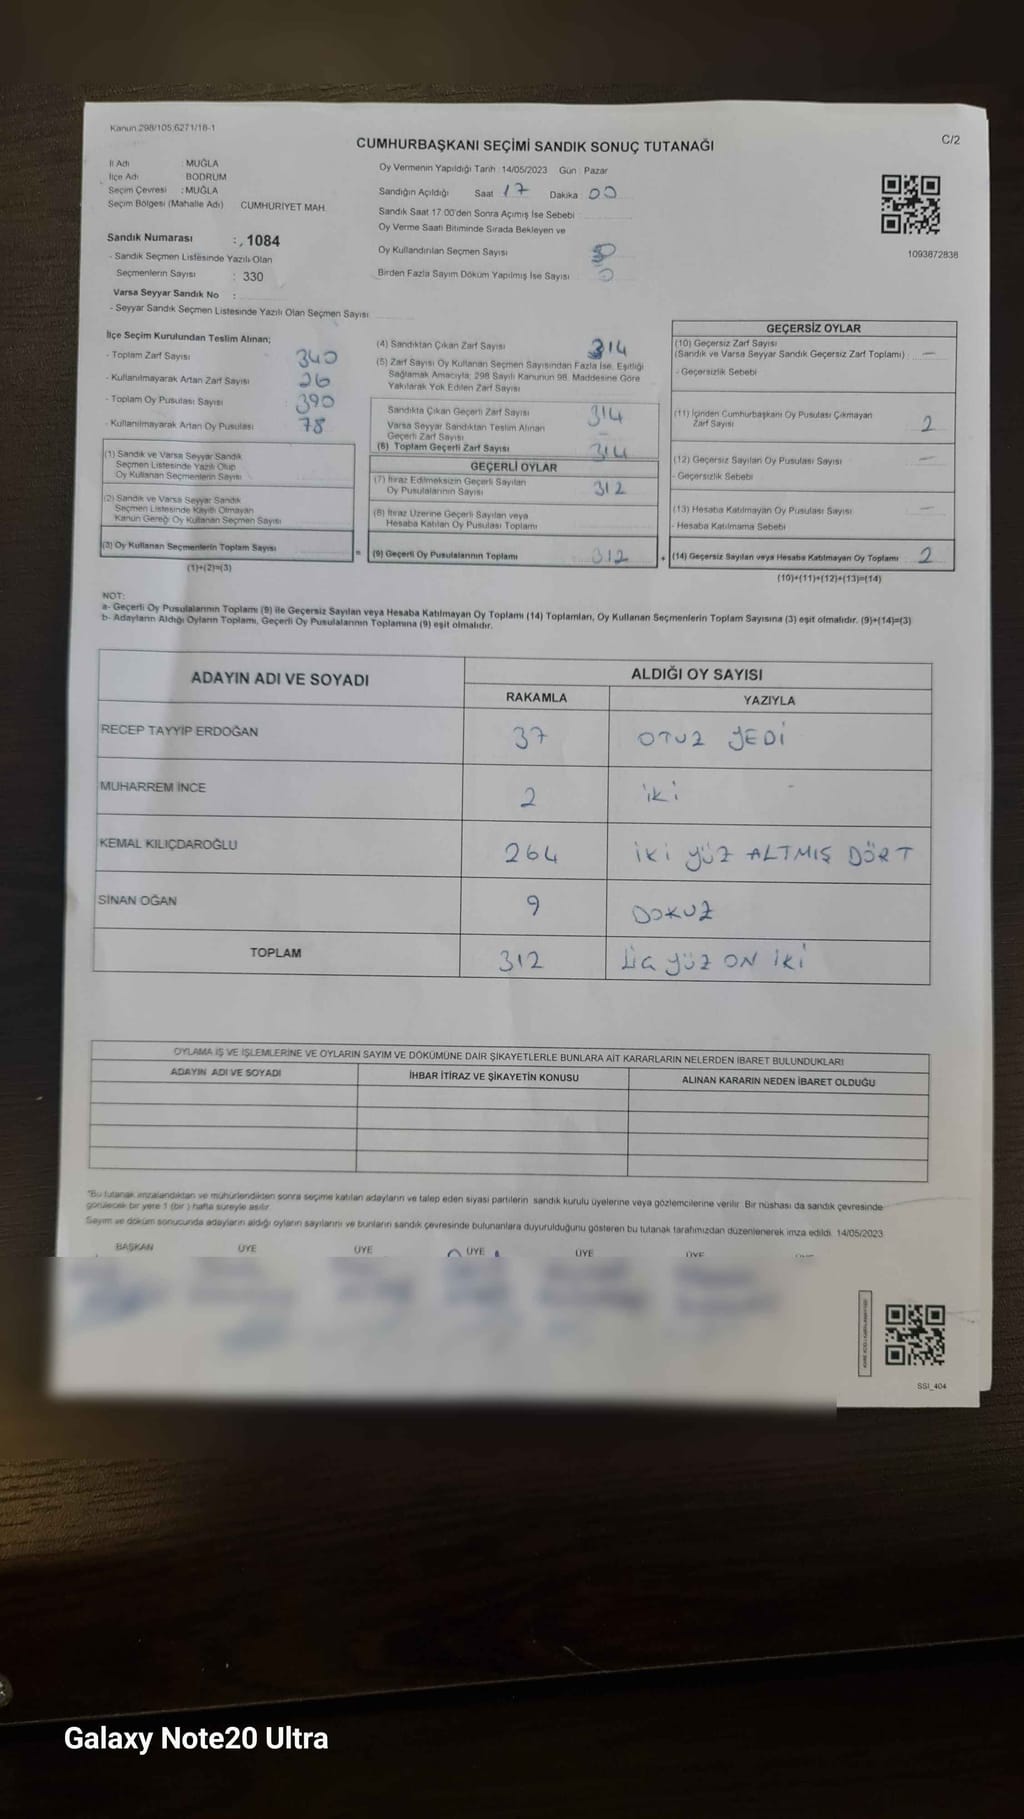 Kanun 298/105;6271/18-1
C/2
CUMHURBAŞKANI SEÇİMİ SANDIK SONUÇ TUTANAĞI
İl Adı : MUĞLA
İlçe Adı : BODRUM
Seçim Çevresi : MUĞLA
Seçim Bölgesi (Mahalle Adı) CUMHURİYET MAH.
Sandık Numarası : 1084
- Sandık Seçmen Listesinde Yazılı Olan
Seçmenlerin Sayısı : 330
Varsa Seyyar Sandık No :
- Seyyar Sandık Seçmen Listesinde Yazılı Olan Seçmen Sayısı
Oy Vermenin Yapıldığı Tarih : 14/05/2023 Gün : Pazar
Sandığın Açıldığı Saat 17 Dakika 00
Sandık Saat 17:00'den Sonra Açımış İse Sebebi
Oy Verme Saati Bitiminde Sırada Bekleyen ve
Oy Kullandırılan Seçmen Sayısı
Birden Fazla Sayım Döküm Yapılmış İse Sayısı 0
1093872838
İlçe Seçim Kurulundan Teslim Alınan;
- Toplam Zarf Sayısı 340
- Kullanılmayarak Artan Zarf Sayısı 26
- Toplam Oy Pusulası Sayısı 390
- Kullanılmayarak Artan Oy Pusulası 78
(1) Sandık ve Varsa Seyyar Sandık
Seçmen Listesinde Yazılı Olup
Oy Kullanan Seçmenlerin Sayısı
(2) Sandık ve Varsa Seyyar Sandık
Seçmen Listesinde Kayıtlı Olmayan
Kanun Gereği Oy Kullanan Seçmen Sayısı
(3) Oy Kullanan Seçmenlerin Toplam Sayısı
(1)+(2)=(3)
(4) Sandıktan Çıkan Zarf Sayısı 314
(5) Zarf Sayısı Oy Kullanan Seçmen Sayısından Fazla İse, Eşitliği
Sağlamak Amacıyla; 298 Sayılı Kanunun 98. Maddesine Göre
Yakılarak Yok Edilen Zarf Sayısı
Sandıkta Çıkan Geçerli Zarf Sayısı 314
Varsa Seyyar Sandıktan Teslim Alınan
Geçerli Zarf Sayısı –
(6) Toplam Geçerli Zarf Sayısı 314
GEÇERLİ OYLAR
(7) İtiraz Edilmeksizin Geçerli Sayılan
Oy Pusulalarının Sayısı 312
(8) İtiraz Üzerine Geçerli Sayılan veya
Hesaba Katılan Oy Pusulası Toplamı
= (9) Geçerli Oy Pusulalarının Toplamı 312
GEÇERSİZ OYLAR
(10) Geçersiz Zarf Sayısı
(Sandık ve Varsa Seyyar Sandık Geçersiz Zarf Toplamı) –
- Geçersizlik Sebebi
(11) İçinden Cumhurbaşkanı Oy Pusulası Çıkmayan
Zarf Sayısı 2
(12) Geçersiz Sayılan Oy Pusulası Sayısı –
- Geçersizlik Sebebi
(13) Hesaba Katılmayan Oy Pusulası Sayısı –
- Hesaba Katılmama Sebebi
+ (14) Geçersiz Sayılan veya Hesaba Katılmayan Oy Toplamı 2
(10)+(11)+(12)+(13)=(14)
NOT:
a- Geçerli Oy Pusulalarının Toplamı (9) ile Geçersiz Sayılan veya Hesaba Katılmayan Oy Toplamı (14) Toplamları, Oy Kullanan Seçmenlerin Toplam Sayısına (3) eşit olmalıdır. (9)+(14)=(3)
b- Adayların Aldığı Oyların Toplamı, Geçerli Oy Pusulalarının Toplamına (9) eşit olmalıdır.
ADAYIN ADI VE SOYADI ALDIĞI OY SAYISI
RAKAMLA YAZIYLA
RECEP TAYYİP ERDOĞAN 37 OTUZ YEDİ
MUHARREM İNCE 2 iki
KEMAL KILIÇDAROĞLU 264 İKİ YÜZ ALTMIŞ DÖRT
SİNAN OĞAN 9 DOKUZ
TOPLAM 312 ÜÇ YÜZ ON İKİ
OYLAMA İŞ VE İŞLEMLERİNE VE OYLARIN SAYIM VE DÖKÜMÜNE DAİR ŞİKAYETLERLE BUNLARA AİT KARARLARIN NELERDEN İBARET BULUNDUKLARI
ADAYIN ADI VE SOYADI İHBAR İTİRAZ VE ŞİKAYETİN KONUSU ALINAN KARARIN NEDEN İBARET OLDUĞU
*Bu tutanak imzalandıktan ve mühürlendikten sonra seçime katılan adayların ve talep eden siyasi partilerin sandık kurulu üyelerine veya gözlemcilerine verilir. Bir nüshası da sandık çevresinde
görülecek bir yere 1 (bir ) hafta süreyle asılır.
Sayım ve döküm sonucunda adayların aldığı oyların sayılarını ve bunların sandık çevresinde bulunanlara duyurulduğunu gösteren bu tutanak tarafımızdan düzenlenerek imza edildi. 14/05/2023
BAŞKAN ÜYE ÜYE ÜYE ÜYE ÜYE
SSI_404
Galaxy Note20 Ultra